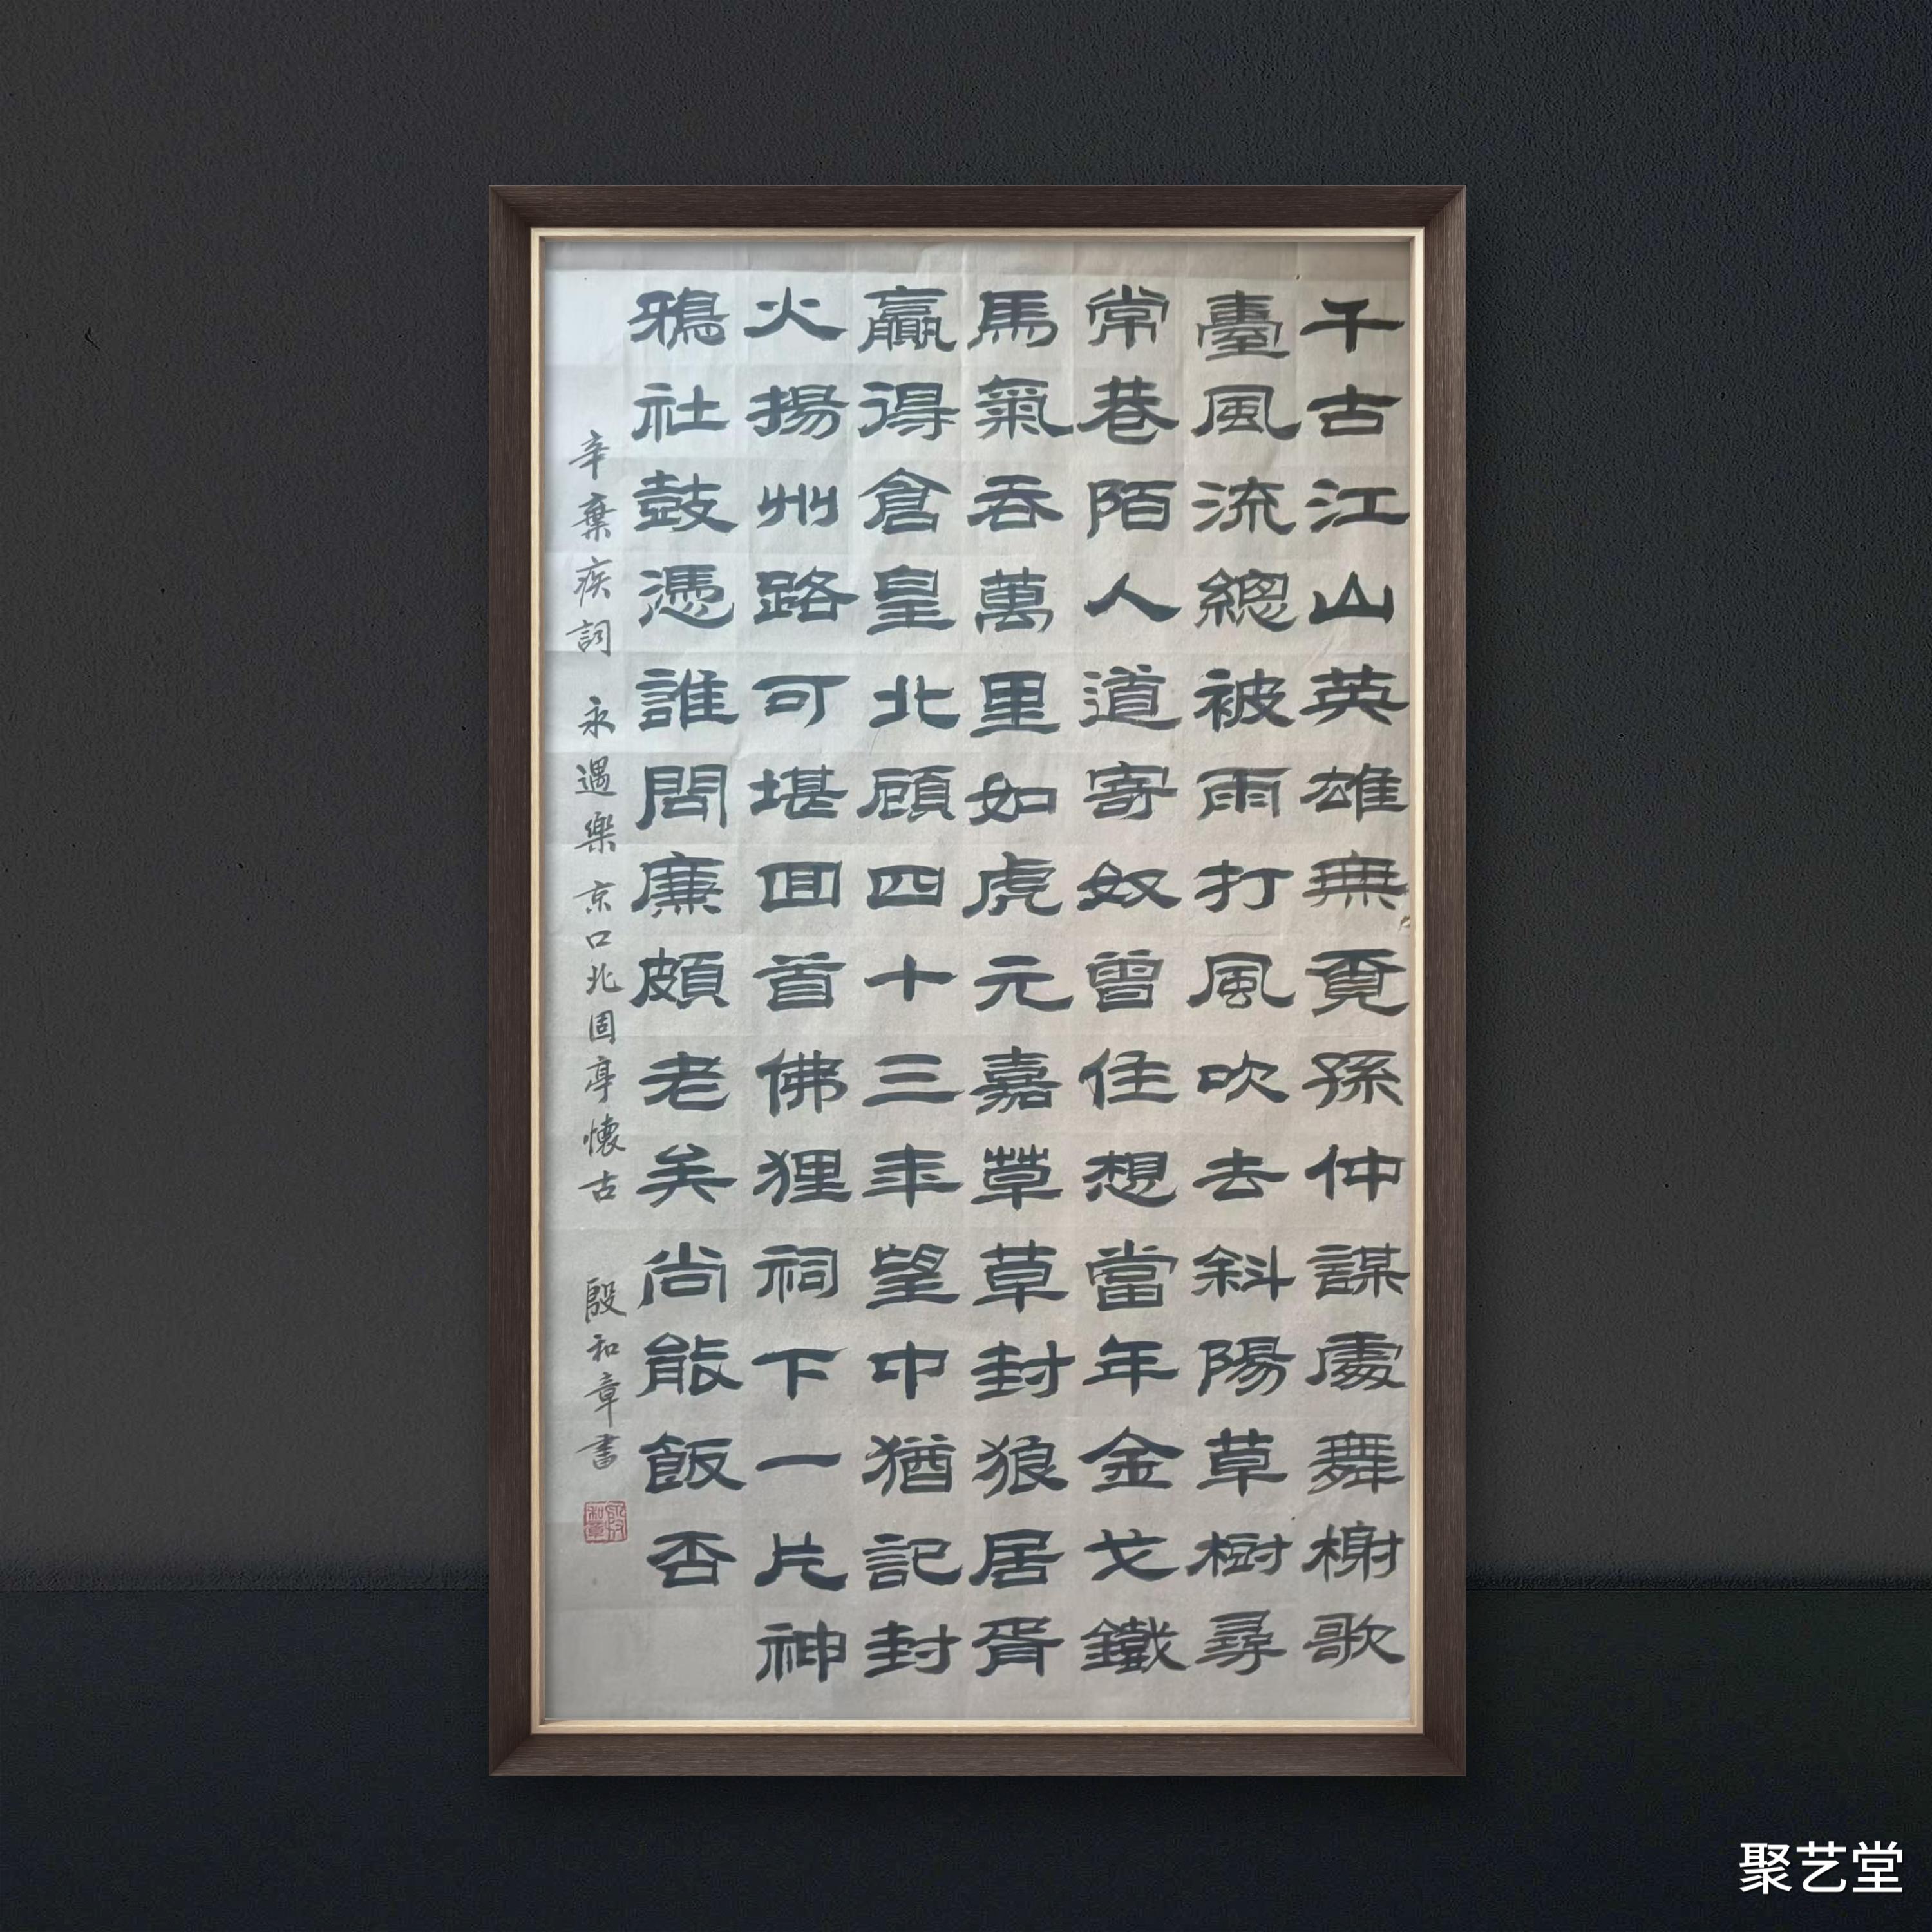 千古江山英雄無覓孫仲謀處舞榭歌
臺風流總被雨打風吹去斜陽草樹尋
常巷陌人道寄奴曾住想當年金戈鐵
馬氣吞萬里如虎元嘉草草封狼居胥
贏得倉皇北顧四十三年望中猶記封
火揚州路可堪回首佛狸祠下一片神
鴉社鼓憑誰問廉頗老矣尚能飯否
辛棄疾詞 永遇樂 京口北固亭懷古 殷和章書
殷和章
聚艺堂